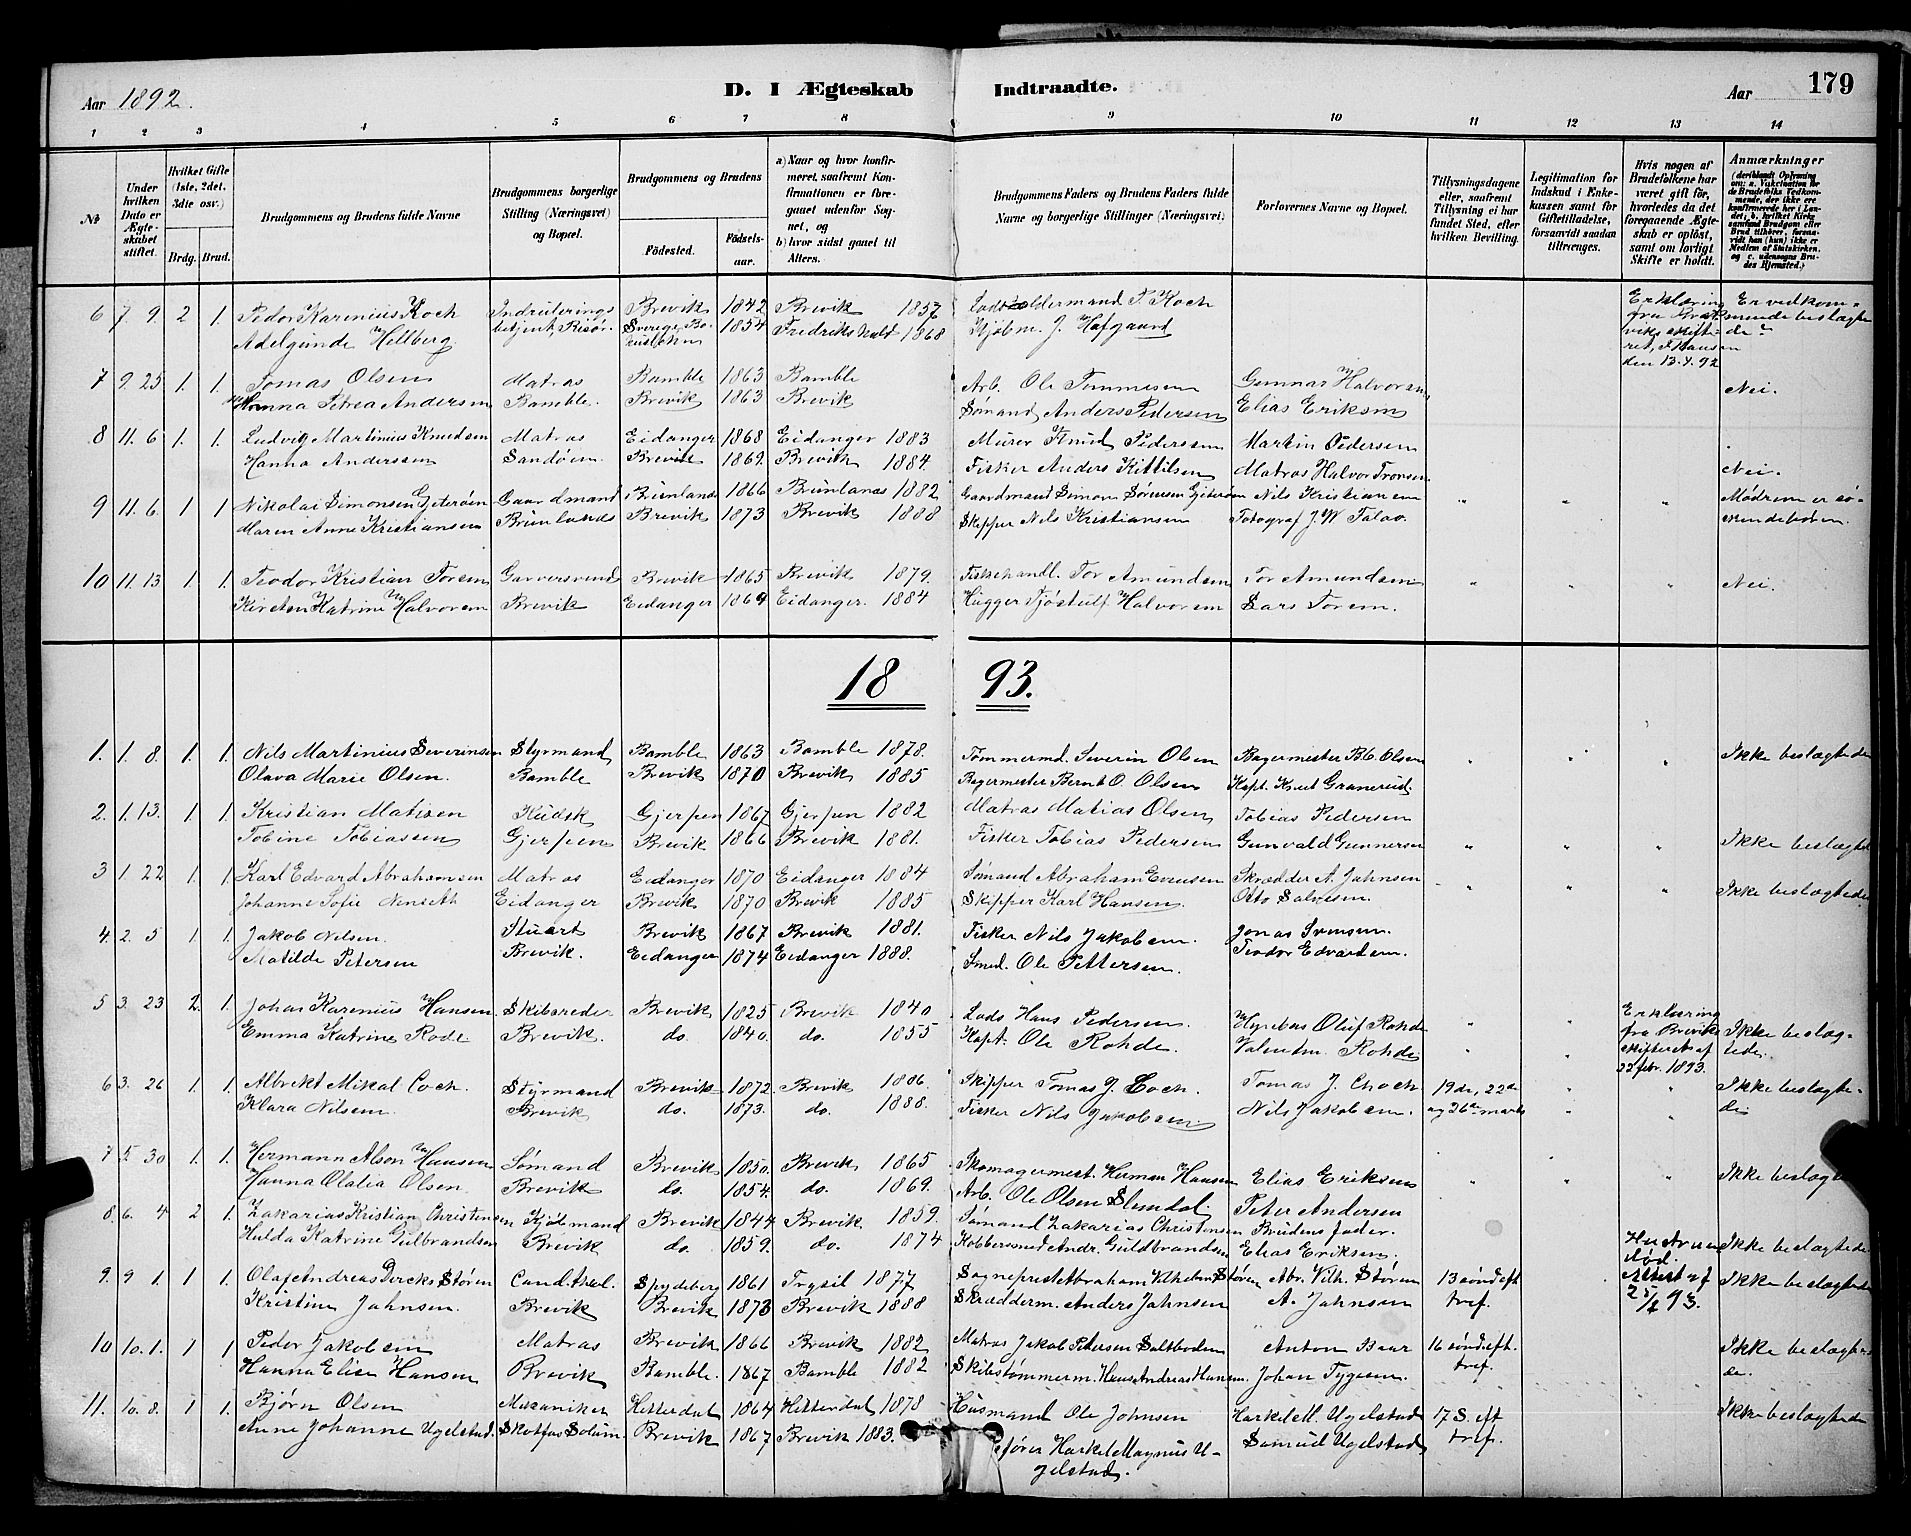 Aar 1892. D. I Ægteskab Indtraadte. Aar 179
1 2 3 4 5 6 7 8 9 10 11 12 13 14
№
Under hvilken Dato er Ægteskabet stiftet.
Hvilket Gifte (1ste, 2det, 3die osv.)
Brdg. Brud.
Brudgommens og Brudens fulde Navne
Brudgommens borgerlige Stilling (Næringsvei) og Bopæl.
Brudgommens og Brudens
Fødested. Fødselsaar.
a) Naar og hvor konfirmeret, saafremt Konfirmationen er foregaaet udenfor Sognet, og
b) hvor sidst gaaet til Alters.
Brudgommens Faders og Brudens Faders fulde Navne og borgerlige Stillinger (Næringsvei).
Forlovernes Navne og Bopæl.
Tillysningsdagene eller, saafremt Tillysning ei har fundet Sted, efter hvilken Bevilling.
Legitimation for Indskud i Enkekassen samt for Giftetilladelse, forsaavidt saadan tiltrænges.
Hvis nogen af Brudefolkene har været gift før, hvorledes da det foregaaende Ægteskab er opløst, samt om lovligt Skifte er holdt.
Anmærkninger (deriblandt Oplysning om: a. Vaccination for de Brudefolks Vedkommende, der ikke ere konfirmerede her i Landet, b. hvilket Kirkesamfund Brudgom eller Brud tilhører, forsaavidt han (hun) ikke er Medlem af Statskirken, og c. udensogns Brudes Hjemsted.)
6 7 9. 2 1. Peder Karenius Koch Brevik 1842 Brevik 1857 Lodsoldermand P. Koch Erklæring Er vedkom-
Adelgunde Hellberg. Sverige, Bo- 1854 Fredrikshald 1868 Kjøbm. J. Hafgaard mende beslægte
de?
den 13.4.92
7 9. 25 1. 1. Tomas Olsen Matros Bamble 1863 Bamble Arb. Ole Tommesen Gunnar Halvorsen Nei.
Hanna Petrea Andersen Bamble. Brevik 1863 Brevik Sømand Anders Pedersen Elias Eriksen
8 11. 6 1. 1. Ludvig Martinius Knudsen Matros Eidanger 1868 Eidanger 1883 Murer Knud Pedersen Martin Pedersen
Hanna Anderssen Sandøen. Brevik 1869. Brevik 1884. Fisker Anders Kittilsen Matros Halvor Tronsen Nei.
9 11. 6. 1 1 Nikolai Simonsen Gjeterøen Gaardmand Brunlanes 1866 Brunlanes 1882 Gaardmand Simon Sørensen Gjeterøen Nils Kristiansen " " " Mødrene er sø-
Maren Anne Kristiansen Brunlanes Brevik 1873 Brevik 1888 Skipper Nils Kristiansen Fotograf J. W. skendebørn.
10 11. 13 1. 1. Teodor Kristian Torsen Garversvend Brevik 1865 Brevik 1879. Fiskehandl. Tor Amundsen Tor Amundsen " " " Nei.
Kirsten Katrine Halvorsen Brevik Eidanger 1869 Eidanger. 1884 Hugger Tjøstulf Halvorsen Lars Torsen.
18 93.
1. 1. 8. 1. 1. Nils Martinius Severinsen Styrmand Bamble 1863 Bamble 1878. Tømmermd. Severin Olsen Bagermester B. O. Olsen " " " Ikke beslægtede
Olava Marie Olsen. Bamble Brevik 1870 Brevik 1885 Bagermester Bernt O. Olsen Kapt. Knut Granerud.
2. 1. 13. 1 1. Kristian Matisen Kudsk Gjerpen 1867 Gjerpen 1882 Matros Matias Olsen Tobias Pedersen
Tobine Tobiassen Gjerpen Brevik 1866 Brevik 1881. Fisker Tobias Pedersen Gunvald Gunnersen " " " Ikke beslægtede
3 1. 22 1. 1. Karl Edvard Abrahamsen Matros Eidanger 1870 Eidanger 1884 Sømand Abraham Evensen Skrædder A. Jahnsen " " " Ikke beslægtede
Johanne Sofie Nenseth Eidanger Brevik 1870 Brevik 1885 Skipper Karl Hansen. Otto Salvesen.
4. 2. 5 1. 1. Jakob Nilsen. Stuart Brevik 1867 Brevik 1881. Fisker Nils Jakobsen. Jonas Svensen.
Matilde Petersen Brevik. Eidanger 1874 Eidanger 1888. Smed. Ole Pettersen. Teodor Edvardsen.
5 3. 23 2. 1. Johan Karenius Hansen. Skibsreder Brevik 1825 Brevik 1840 Lods Hans Pedersen. Hyrebas Oluf Rohde " Erklæring
Emma Katrine Rode. Brevik. do. 1840. do. 1855 Kapt. Ole Rohde. Valentin Rohde " " fra Brevik Ikke beslæg-
skifteret af tede.
22 febr. 1893.
6 3. 26 1. 1. Albrekt Mikal Coch. Styrmand Brevik 1872 Brevik 1886. Skipper Tomas J. Coch. Tomas J. Choch 19de, 22de " " Ikke beslægte-
Klara Nilsen. Brevik do. 1873. do. 1888. Fisker Nils Jakobsen. Nils Jakobsen. og 26de marts " " de
7 5 30 1. 1. Hermann Alson Hansen Sømand Brevik 1850. Brevik 1865 Skomagermest. Herman Hansen Elias Eriksen " " " Ikke beslægtede
Hanna Olalia Olsen. Brevik do. 1854. do. 1869. Arb. Ole Olsen Slemdal. Peter Andersen
8. 6. 4 2 1. Zakarias Kristian Christensen Kjøbmand Brevik 1844 Brevik. 1859. Sømand Zakarias Christensen Brudens fader.
Hulda Katrine Gulbrandsen Brevik do. 1859. do. 1874 Kobbersmed Andr. Guldbrandsen Elias Eriksen. Hustruen Ikke beslægtede
død.
9. 9 1. 1 1. Olaf Andreas Dircks Støren Cand. theol. Spydeberg 1861 Trysil 1877 Sogneprest Abraham Vilhelm Støren Abr. Vilh. Støren 13 sønd eft Attest af Ikke beslægtede
Kristine Jahnsen. Brevik Brevik 1873 Brevik 1888 Skrædderm. Anders Jahnsen A. Jahnsen tref. 93.
10 10. 1. 1 1 Peder Jakobsen Matros Brevik 1866 Brevik 1882 Matros Jakob Petersen Saltboden Anton Baar 16 sønd eft. Ikke beslægte-
Hanna Elise Hansen Brevik Bamble. 1867 Bamble 1882 Skibstømmerm. Hans Andreas Hansen. Johan Tygesen. tref. de.
11. 10. 8. 1 1. Bjørn Olsen Mekaniker Hitterdal 1864 Hitterdal 1878 Husmand Ole Johnsen Harkel M. Ugelstad 17 S. eft Ikke beslægtede
Anne Johanne Ugelstad. Skotfos Solum. Brevik 1867 Brevik 1883. fører Harkel Magnus U- Samuel Ugelstad tref.
gelstad.